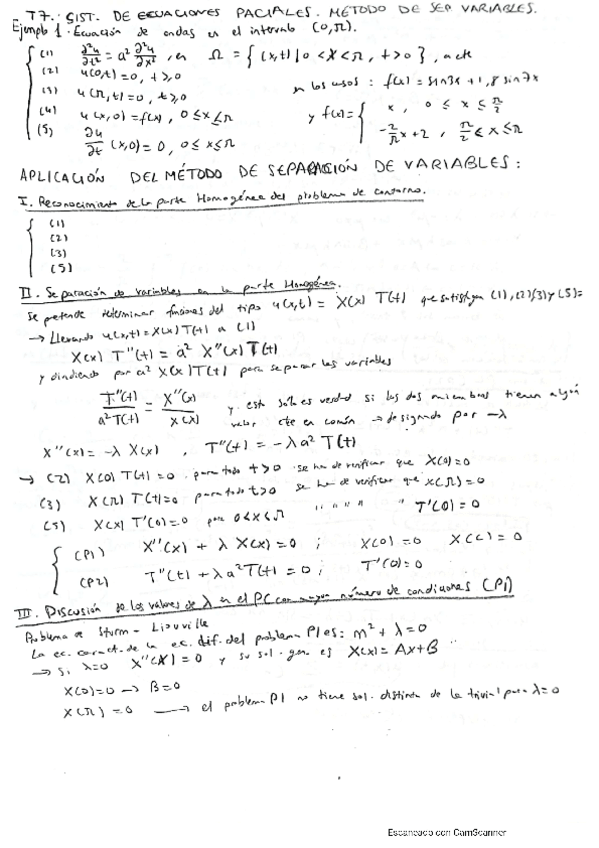 T7. SIST. DE ECUACIONES PACIALES. MÉTODO DE SEP VARIABLES.
Ejemplo 1. Ecuación de ondas en el intervalo (0,π).
(1) ∂²u/∂t² = a² ∂²u/∂x², en Ω = { (x,t) | 0 < x < π, t > 0 }, a cte
(2) u(0,t) = 0, t ≥ 0
(3) u(π,t) = 0, t ≥ 0 en los casos: f(x) = sin3x + 1,8 sin7x
(4) u(x,0) = f(x), 0 ≤ x ≤ π y f(x) = { x, 0 ≤ x ≤ π/2
(5) ∂u/∂t (x,0) = 0, 0 ≤ x ≤ π -2/π x + 2, π/2 < x ≤ π
APLICACIÓN DEL MÉTODO DE SEPARACIÓN DE VARIABLES:
I. Reconocimiento de la parte Homogénea del problema de contorno.
(1)
(2)
(3)
(5)
II. Separación de variables en la parte Homogénea.
Se pretende determinar funciones del tipo u(x,t) = X(x) T(t) que satisfagan (1), (2)(3) y (5)=
→ Llevando u(x,t) = X(x) T(t) a (1)
X(x) T''(t) = a² X''(x) T(t)
y dividiendo por a² X(x) T(t) para separar las variables
T''(t)/a²T(t) = X''(x)/X(x) y esto sólo es verdad si los dos miembros tienen algún
valor cte en común → designado por -λ
X''(x) = -λ X(x), T''(t) = -λ a² T(t)
→ (2) X(0) T(t) = 0 para todo t > 0 se ha de verificar que X(0) = 0
(3) X(π) T(t) = 0 para todo t > 0 se ha de verificar que X(π) = 0
(5) X(x) T'(0) = 0 para 0 < x ≤ π " " " " " T'(0) = 0
(P1) X''(x) + λ X(x) = 0 ; X(0) = 0 X(π) = 0
(P2) T''(t) + λ a² T(t) = 0 ; T'(0) = 0
III. Discusión de los valores de λ en el PC con mayor número de condiciones (P1)
Problema de Sturm-Liouville
La ec. caract. de la ec. dif. del problema P1 es: m² + λ = 0
→ Si λ=0 X''(x) = 0 y su sol. gen es X(x) = Ax+B
X(0)=0 → B=0
X(π) = 0 → el problema P1 no tiene sol. distinta de la trivial para λ=0
Escaneado con CamScanner